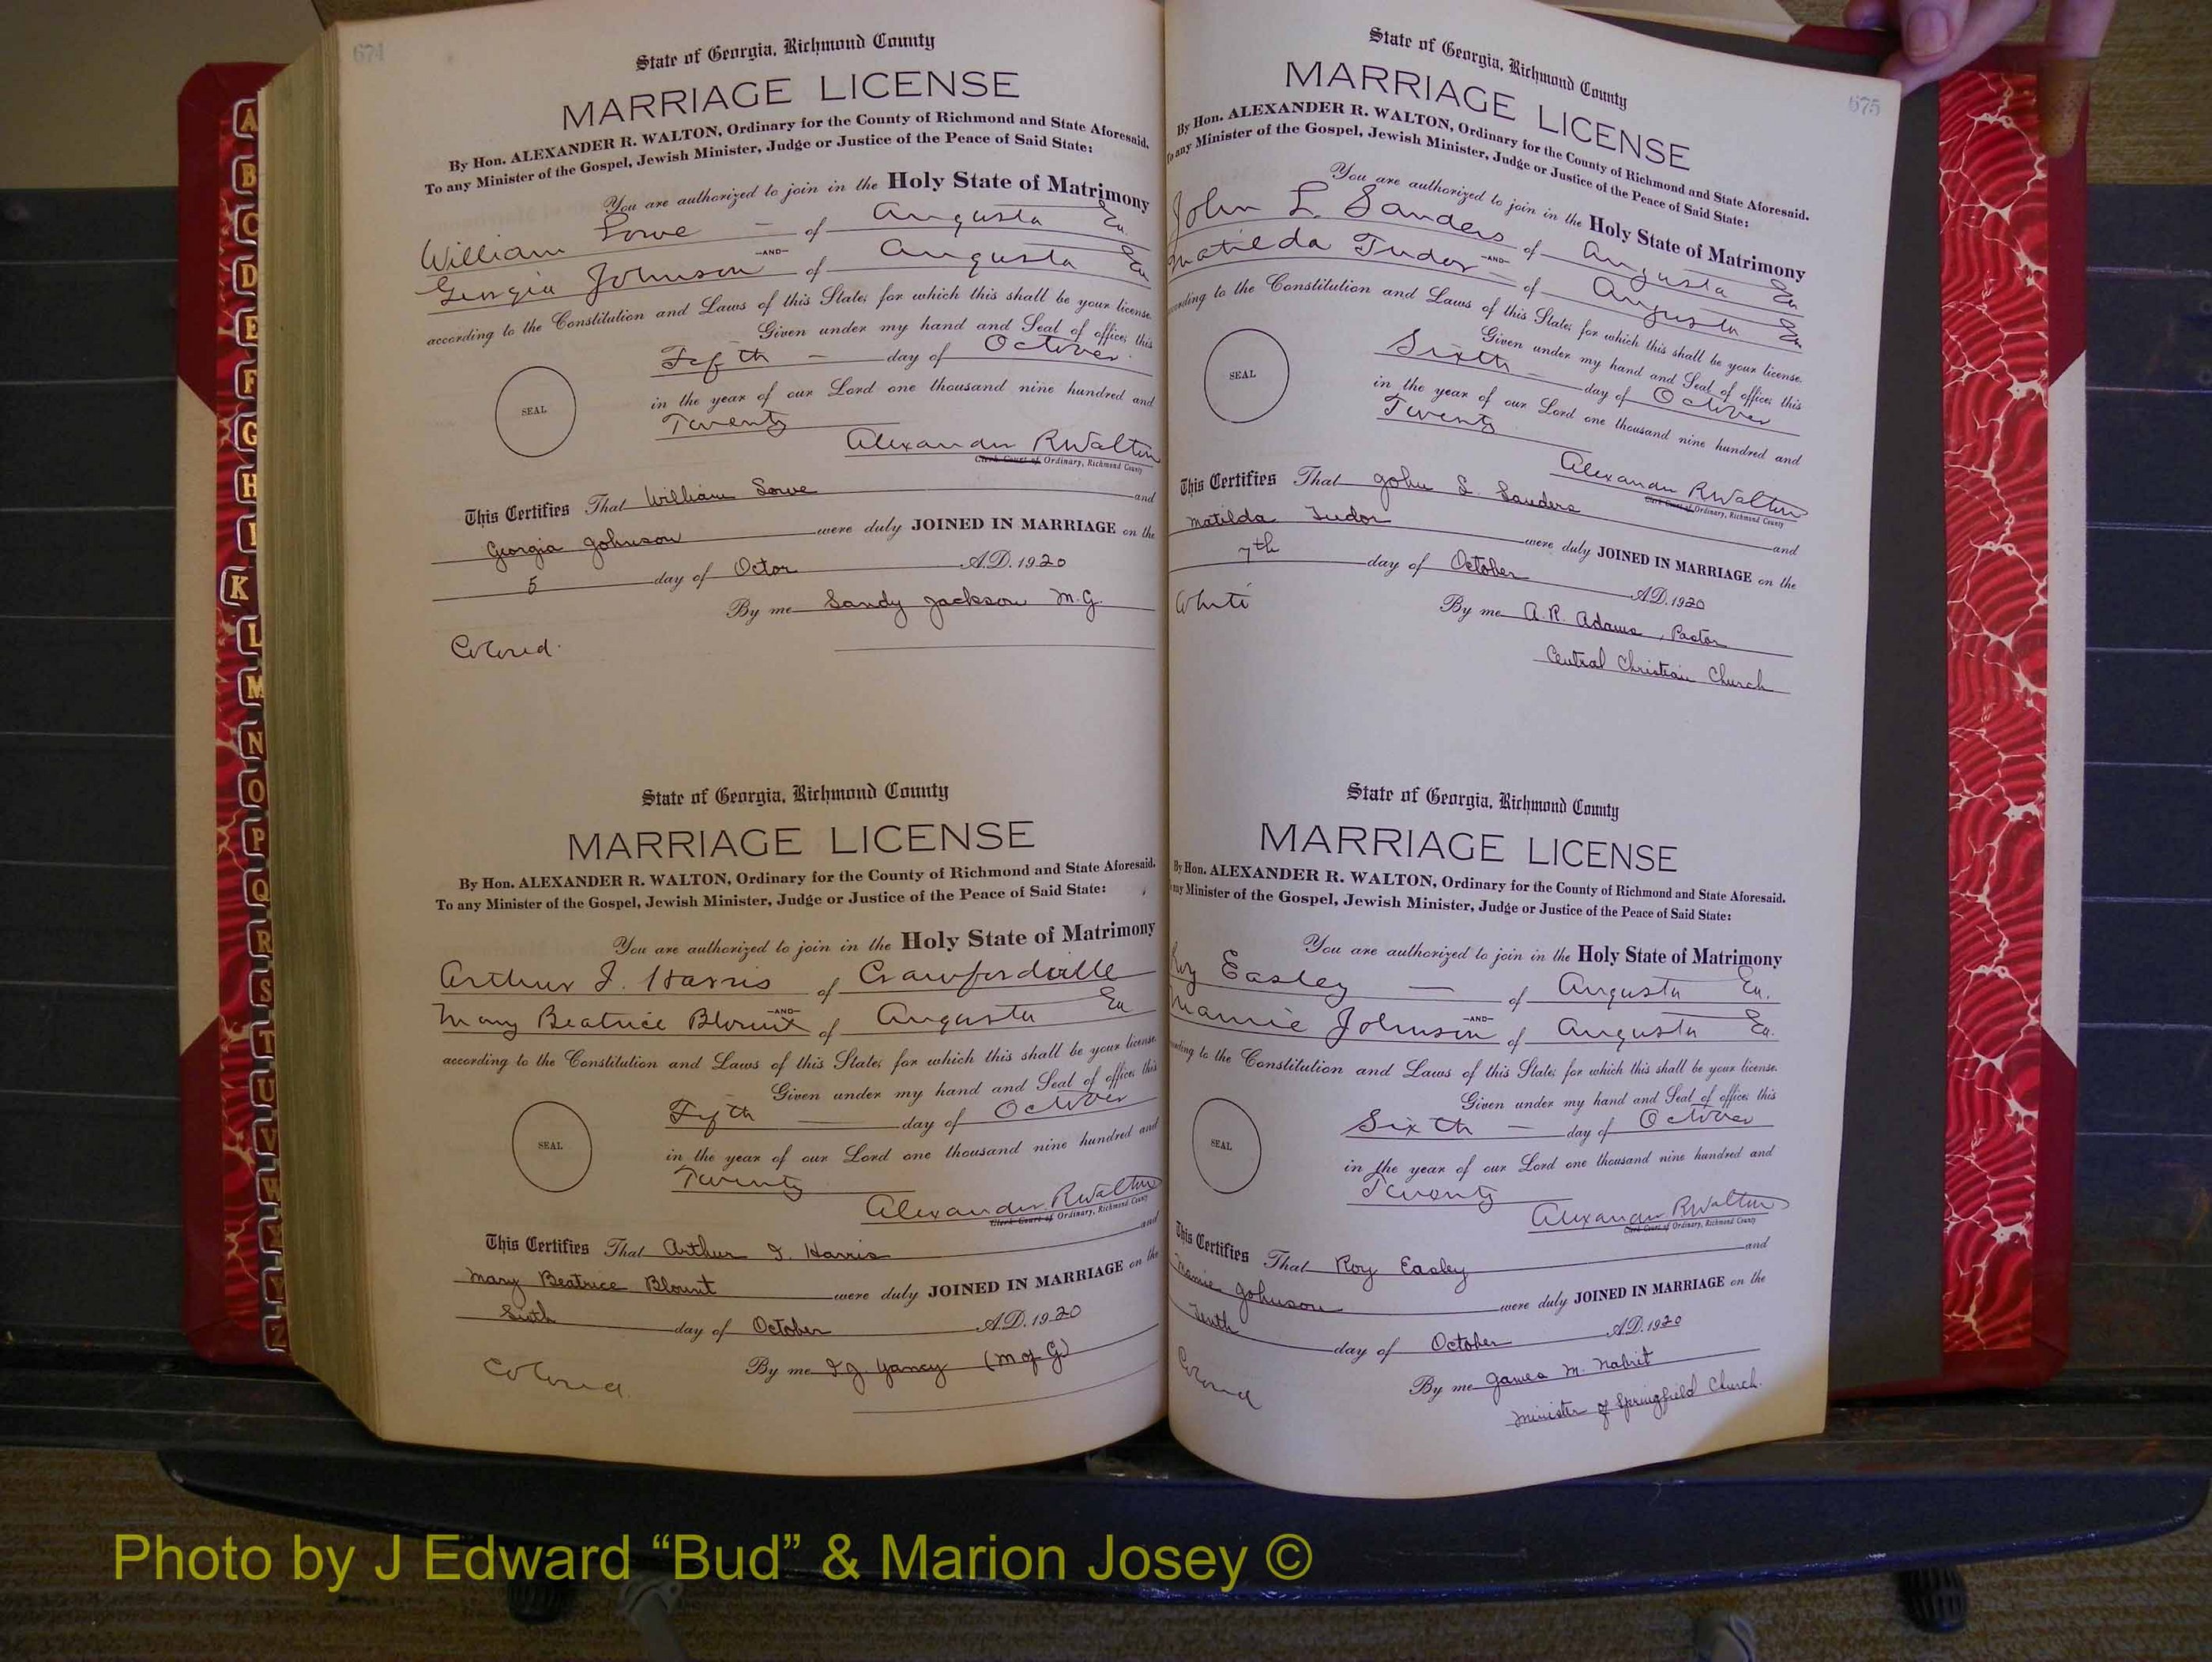 674
State of Georgia, Richmond County
MARRIAGE LICENSE
By Hon. ALEXANDER R. WALTON, Ordinary for the County of Richmond and State Aforesaid.
To any Minister of the Gospel, Jewish Minister, Judge or Justice of the Peace of Said State:
You are authorized to join in the Holy State of Matrimony
William Lowe — of Augusta Ga.
—AND—
Georgia Johnson of Augusta Ga
according to the Constitution and Laws of this State; for which this shall be your license.
Given under my hand and Seal of office, this
Fifth — day of October
SEAL
in the year of our Lord one thousand nine hundred and
Twenty
Alexander R Walton
Clerk Court of Ordinary, Richmond County
This Certifies That William Lowe and
Georgia Johnson were duly JOINED IN MARRIAGE on the
5 day of Octor A.D. 1920
By me Sandy Jackson M.G.
Colored.
State of Georgia, Richmond County
MARRIAGE LICENSE
By Hon. ALEXANDER R. WALTON, Ordinary for the County of Richmond and State Aforesaid.
To any Minister of the Gospel, Jewish Minister, Judge or Justice of the Peace of Said State:
You are authorized to join in the Holy State of Matrimony
Arthur I. Harris of Crawfordville
—AND—
Mary Beatrice Blount of Augusta Ga
according to the Constitution and Laws of this State; for which this shall be your license.
Given under my hand and Seal of office, this
Fifth — day of October
SEAL
in the year of our Lord one thousand nine hundred and
Twenty
Alexander R Walton
Clerk Court of Ordinary, Richmond County
This Certifies That Arthur I. Harris and
Mary Beatrice Blount were duly JOINED IN MARRIAGE on the
Sixth day of October A.D. 1920
By me Yancy (M of G)
Colored.
675
State of Georgia, Richmond County
MARRIAGE LICENSE
By Hon. ALEXANDER R. WALTON, Ordinary for the County of Richmond and State Aforesaid.
To any Minister of the Gospel, Jewish Minister, Judge or Justice of the Peace of Said State:
You are authorized to join in the Holy State of Matrimony
John L. Sanders of Augusta Ga
—AND—
Matilda Tudor — of Augusta Ga
according to the Constitution and Laws of this State; for which this shall be your license.
Given under my hand and Seal of office, this
Sixth — day of October
SEAL
in the year of our Lord one thousand nine hundred and
Twenty
Alexander R Walton
Clerk Court of Ordinary, Richmond County
This Certifies That John L. Sanders and
Matilda Tudor were duly JOINED IN MARRIAGE on the
7th day of October A.D. 1920
White
By me A. R. Adams, Pastor
Central Christian Church
State of Georgia, Richmond County
MARRIAGE LICENSE
By Hon. ALEXANDER R. WALTON, Ordinary for the County of Richmond and State Aforesaid.
any Minister of the Gospel, Jewish Minister, Judge or Justice of the Peace of Said State:
You are authorized to join in the Holy State of Matrimony
Roy Easley — of Augusta Ga.
—AND—
Mamie Johnson of Augusta Ga.
according to the Constitution and Laws of this State; for which this shall be your license.
Given under my hand and Seal of office, this
Sixth — day of October
SEAL
in the year of our Lord one thousand nine hundred and
Twenty
Alexander R Walton
Clerk Court of Ordinary, Richmond County
This Certifies That Roy Easley and
Mamie Johnson were duly JOINED IN MARRIAGE on the
Tenth day of October A.D. 1920
Colored
By me James M. Nabrit
Minister of Springfield Church.
A
B
C
D
E
F
G
H
I
K
L
M
N
O
P
Q
R
S
T
U
V
W
Y
Z
Photo by J Edward “Bud” & Marion Josey ©